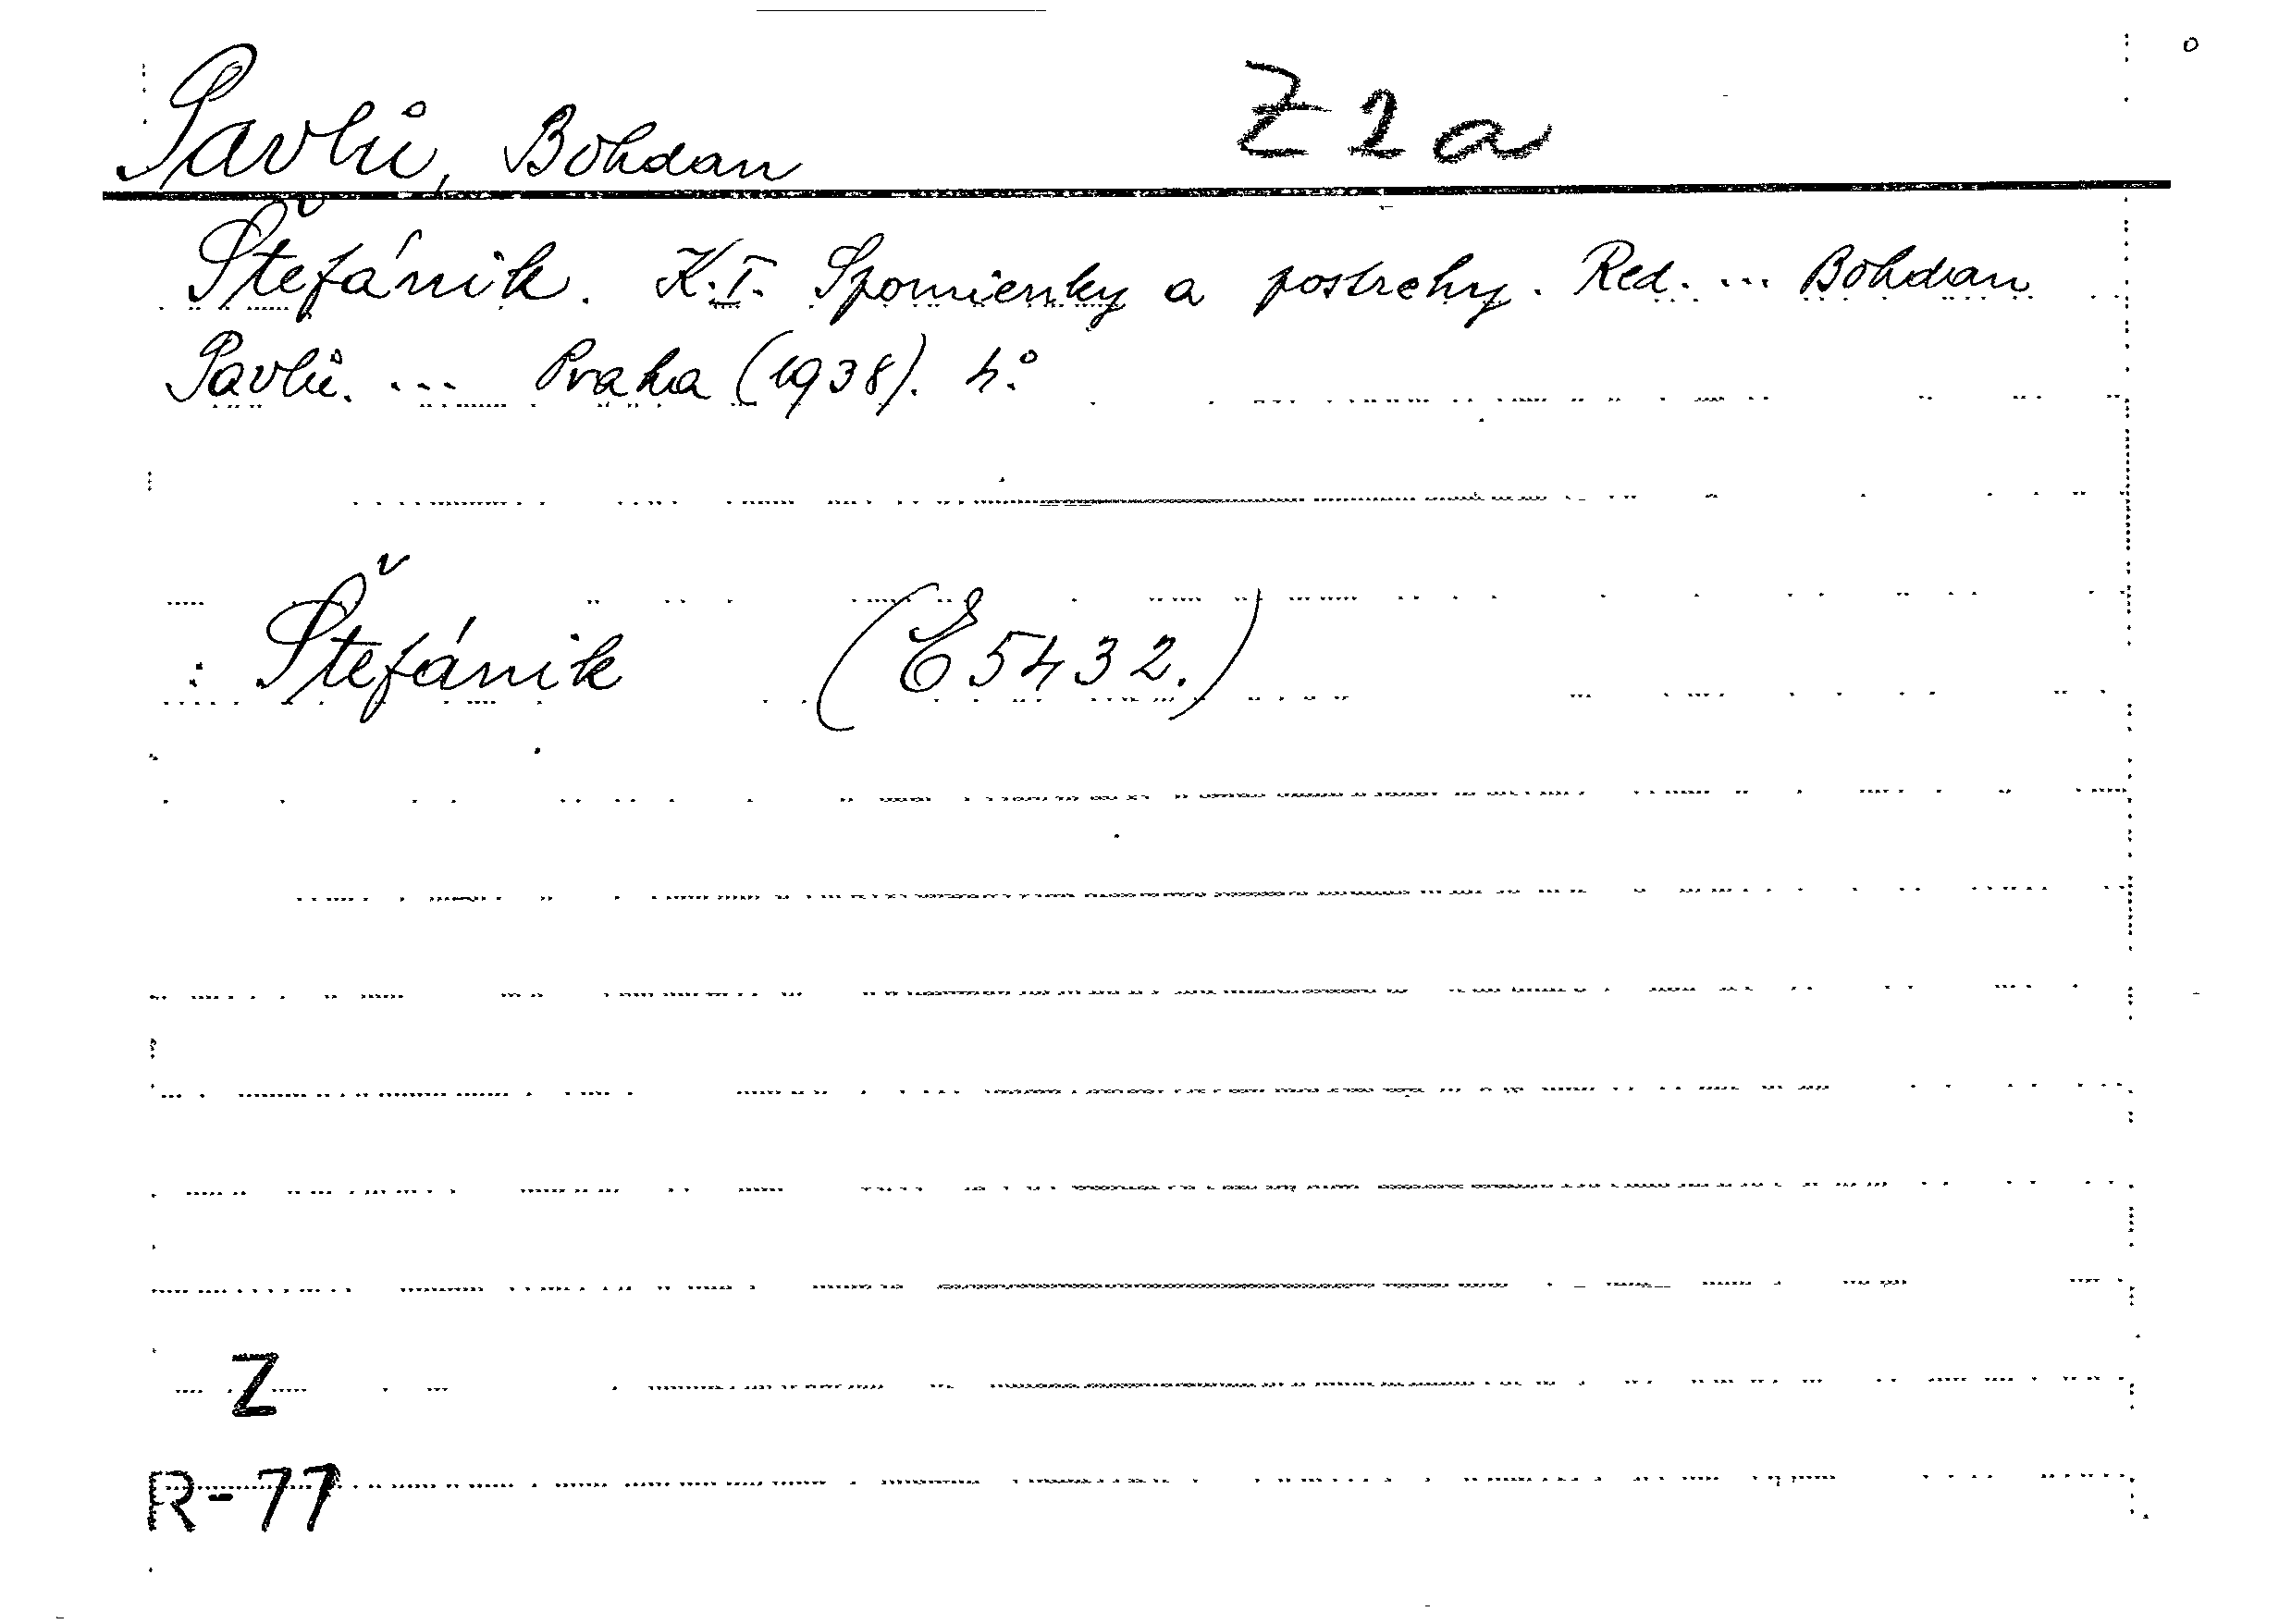 Pavlů, Bohdan Z 2 a
Štefánik. K.I. Spomienky a postrehy. Red. ... Bohdan
Pavlů. ... Praha (1938). 4°
: Štefánik (E 5432.)
Z
R-77